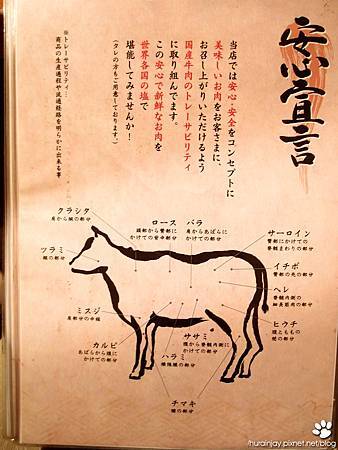 安心宣言
当店では安心・安全をコンセプトに
美味しいお肉をお客さまに、
お召し上がりいただけるよう
国産牛肉のトレーサビリティ
に取り組んでます。
この安心で新鮮なお肉を
世界各国の塩で
堪能してみませんか！
（タレの方もご用意しております）
※トレーサビリティ…
商品の生産過程や流通経路を明らかに出来る事
クラシタ
肩から腕の部分
ロース
頭部から臀部に
かけての背中部分
バラ
肩からあばらに
かけての部分
サーロイン
臀部にかけての
脊髄まわりの部分
ツラミ
頬の部分
イチボ
臀部の先の部分
ヘレ
脊髄内側の
細長筋肉の部分
ミスジ
肩部分の中植
ヒウチ
腹とももの
梃の部分
カルビ
あばらから腹に
かけての部分
ササミ
腹から脊髄内側に
かけての部分
ハラミ
横隔膜の部分
チマキ
脛の部分
/hurainjay.pixnet.net/blog